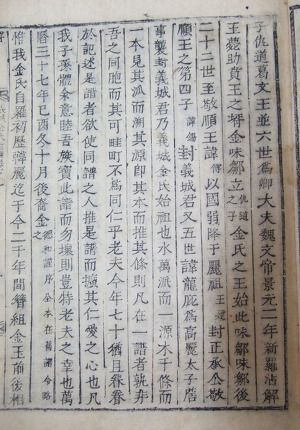 子仇道爲文王並六世爲卿大夫魏文帝景元二年新羅沾解
王薨助賁王之壻金味鄒立仇道之子金氏之王始此味鄒味鄒後
二十二世至敬順王諱傅以國弱降于麗祖王建封正承公敬
順王之第四子諱錫封義城君又五世諱龍庇爲高麗太子詹
事襲封義城君乃義城金氏始祖也水萬派而一源木千條而
一本見其派而溯其源卽其本而推其條則凡在一譜者孰非
吾之同胞而其可畦町不爲同仁乎老夫今年七十猶且眷眷
於記述是譜者欲使同譜之人推是譜而擴其仁愛之心也凡
我子孫體余意睦吾族寶此譜而勿壞則豈特老夫之幸也萬
曆三十七年己酉冬十月後裔金 序全本在舊譜今略
惟我金氏自羅初歷韓麗迄于今二千年間簪組金玉前後相